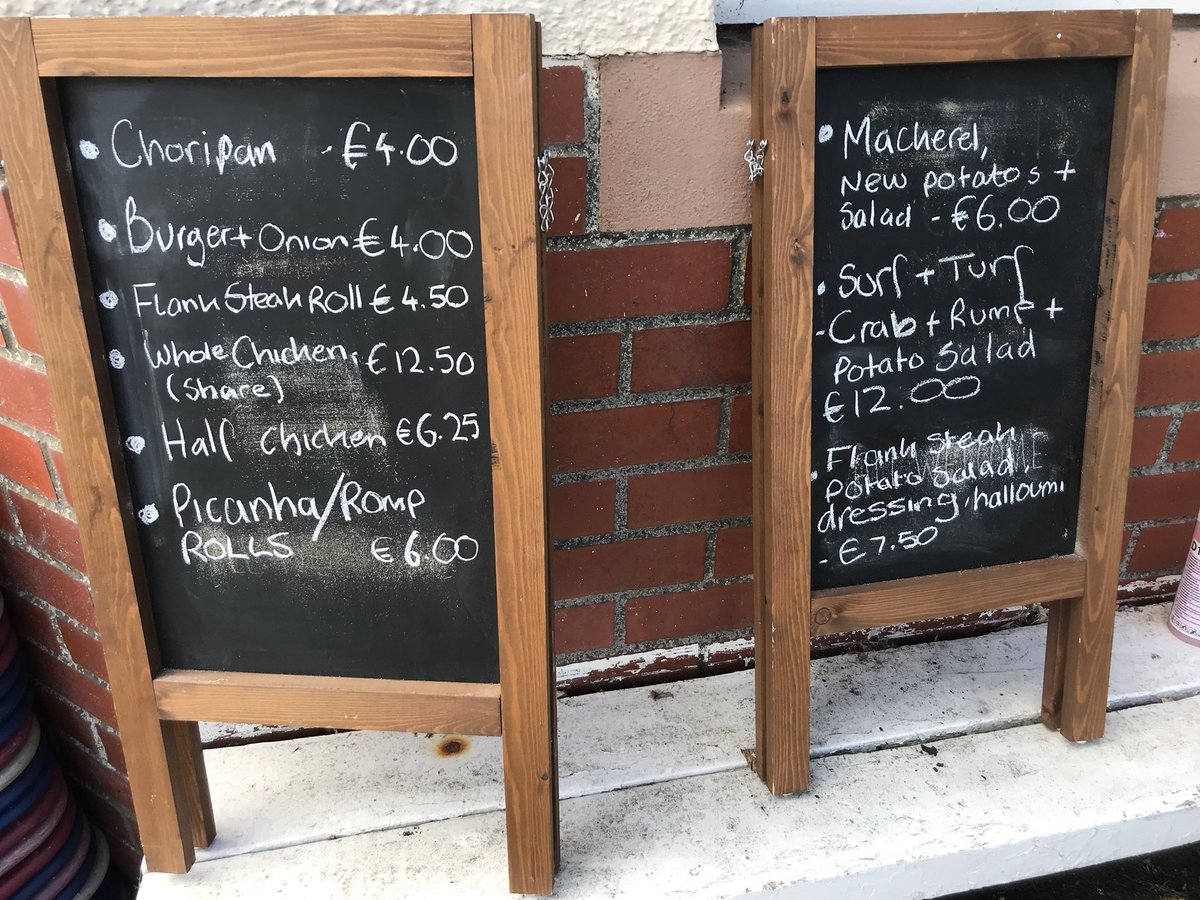 Choripan - €4.00
Burger + Onion €4.00
Flank Steak Roll €4.50
Whole Chicken. €12.50
(share)
Half chicken €6.25
Picanha/Romp
ROLLS €6.00
Mackerel,
New potatos +
Salad - €6.00
Surf + Turf
- Crab + Rump +
Potato Salad
€12.00
Flank steak
Potato Salad,
dressing, halloumi
- €7.50